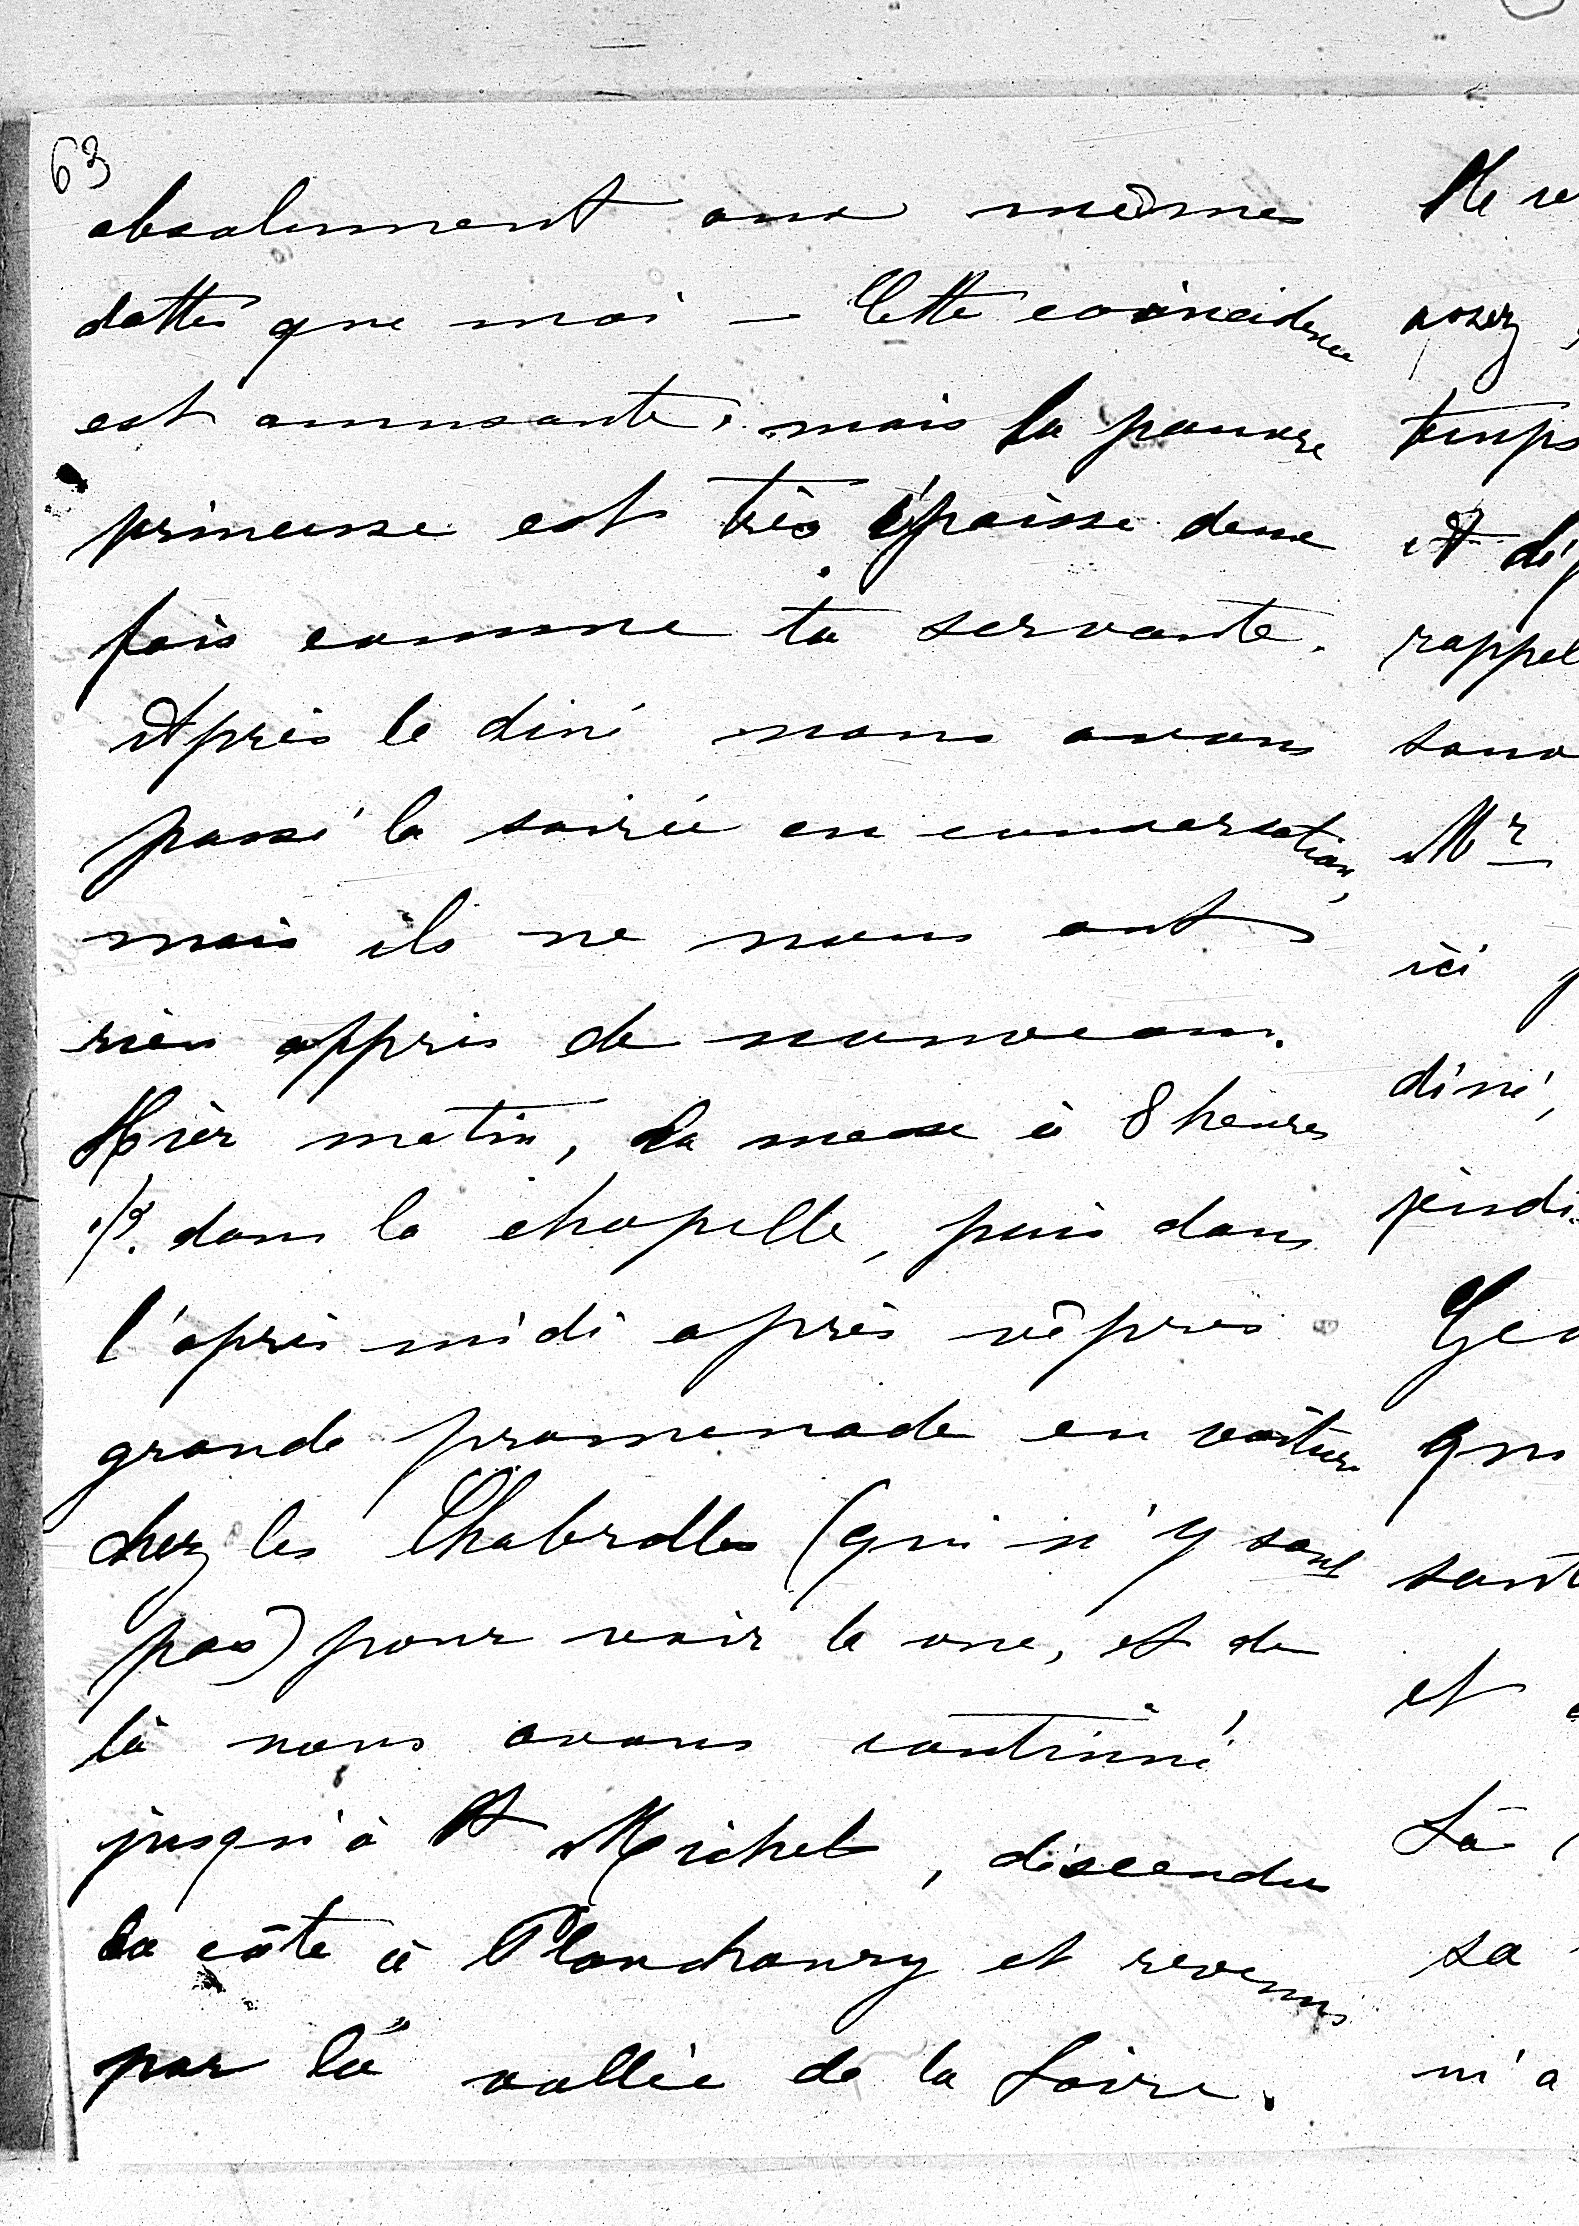 63
absolument aux mêmes
dattes que moi – Cette coincidence
est amusante, mais la pauvre
princesse est très épaisse deux
fois comme ta servante.
Après le diné nous avons
passé la soirée en conversation,
mais ils ne nous ont
rien appris de nouveau.
Hièr matin, la messe à 8 heures
1/2. dans la chapelle, puis dans
l'après midi après vêpres
grande promenade en voiture
chez les Chabrolles (qui n'y sont
pas) pour voir la vue, et de
là nous avons continué
jusqu'à St Michel, descendu
la côte à Planchoury et revenus
par la vallée de la Loire.
assez
temps
et
rappel
Mr
ici
diné,
jeudi
qui
sont
et
Sa
sa
m'a